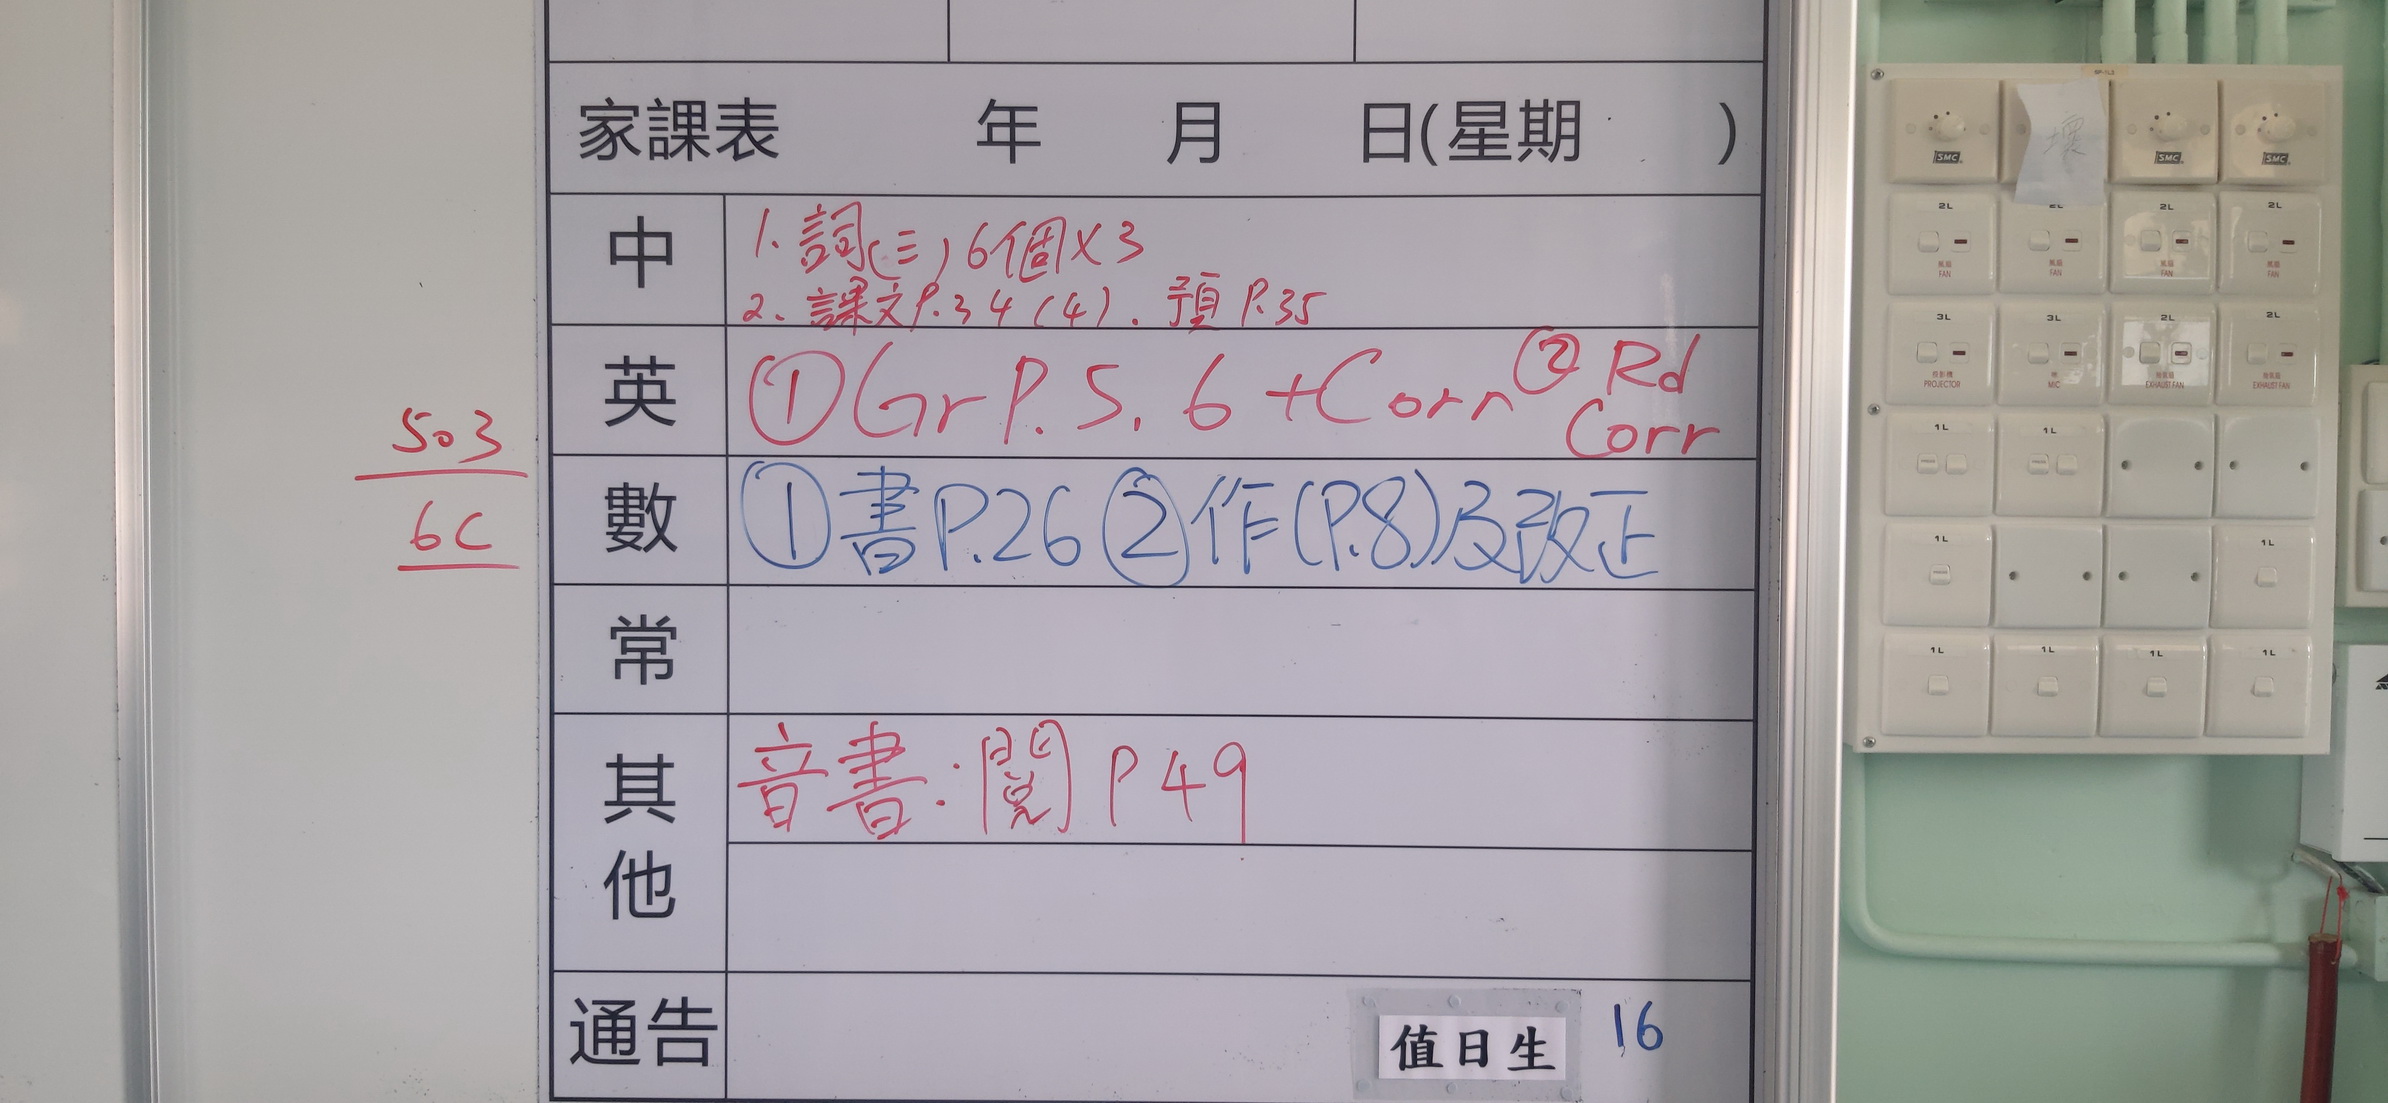 家課表 年 月 日(星期 )
中
1. 詞(三) 6個×3
2. 課文P.34(4). 預P.35
英
①Gr P.5, 6 +Corr ② Rd
Corr
數
①書P.26 ②作(P.8)及改正
常
其他
音書:閱 P49
通告
值日生 16
503
6C
壞
SMC SMC SMC
2L 2L 2L 2L
風扇 風扇 風扇 風扇
FAN FAN FAN FAN
3L 3L 2L 2L
投影機 咪 抽氣扇 抽氣扇
PROJECTOR MIC EXHAUST FAN EXHAUST FAN
1L 1L
1L 1L
1L 1L 1L 1L